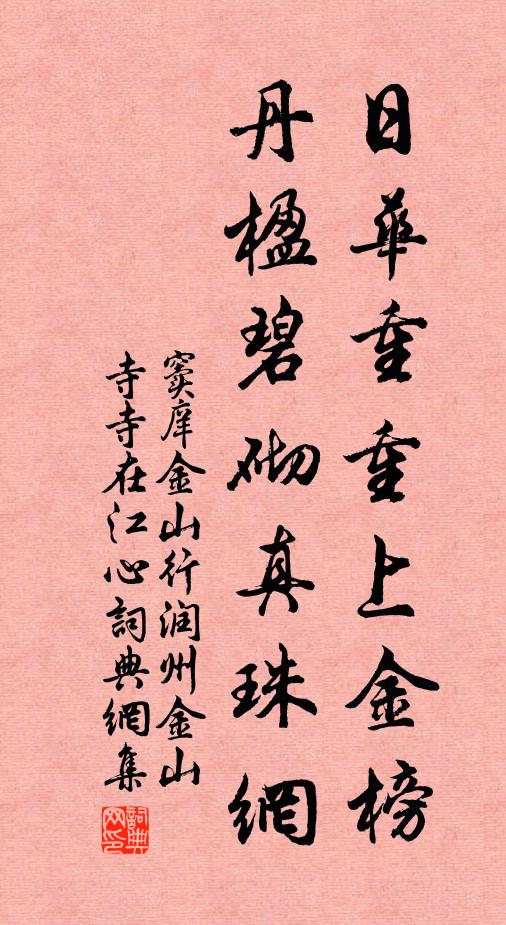 日華重重上金榜
丹楹碧砌真珠網
竇庠金山行润州金山
寺寺在江心詞典網集
詞典
网印